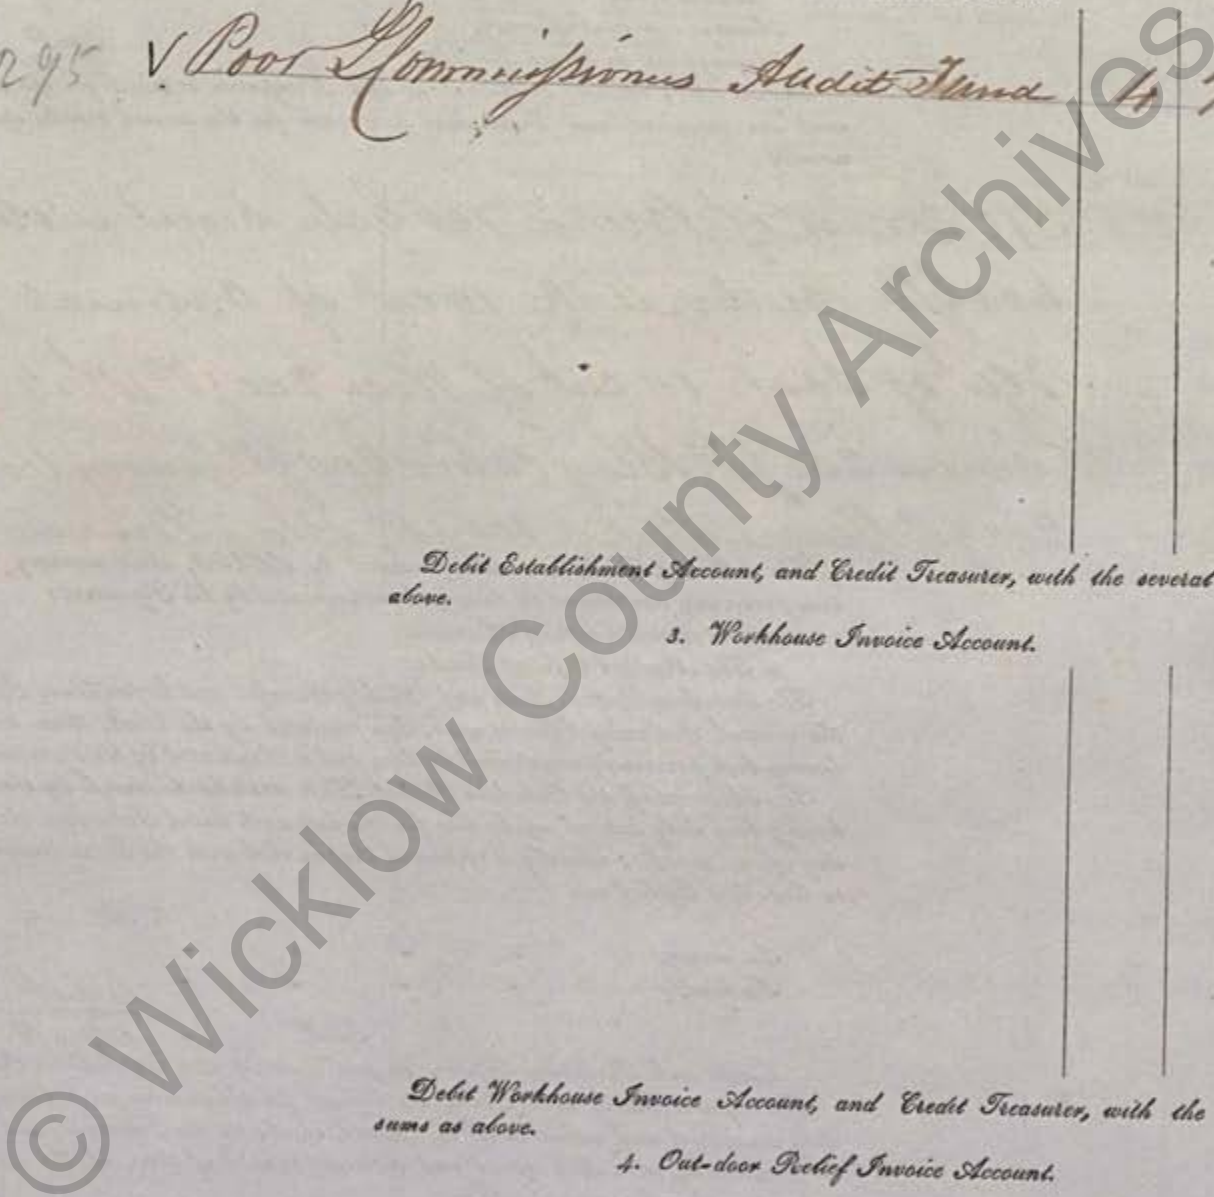 295 √ Poor L Commissioners Audit Fund 4
Debit Establishment Account, and Credit Treasurer, with the several
above.
3. Workhouse Invoice Account.
Debit Workhouse Invoice Account, and Credit Treasurer, with the
sums as above.
4. Out-door Relief Invoice Account.
© Wicklow County Archives